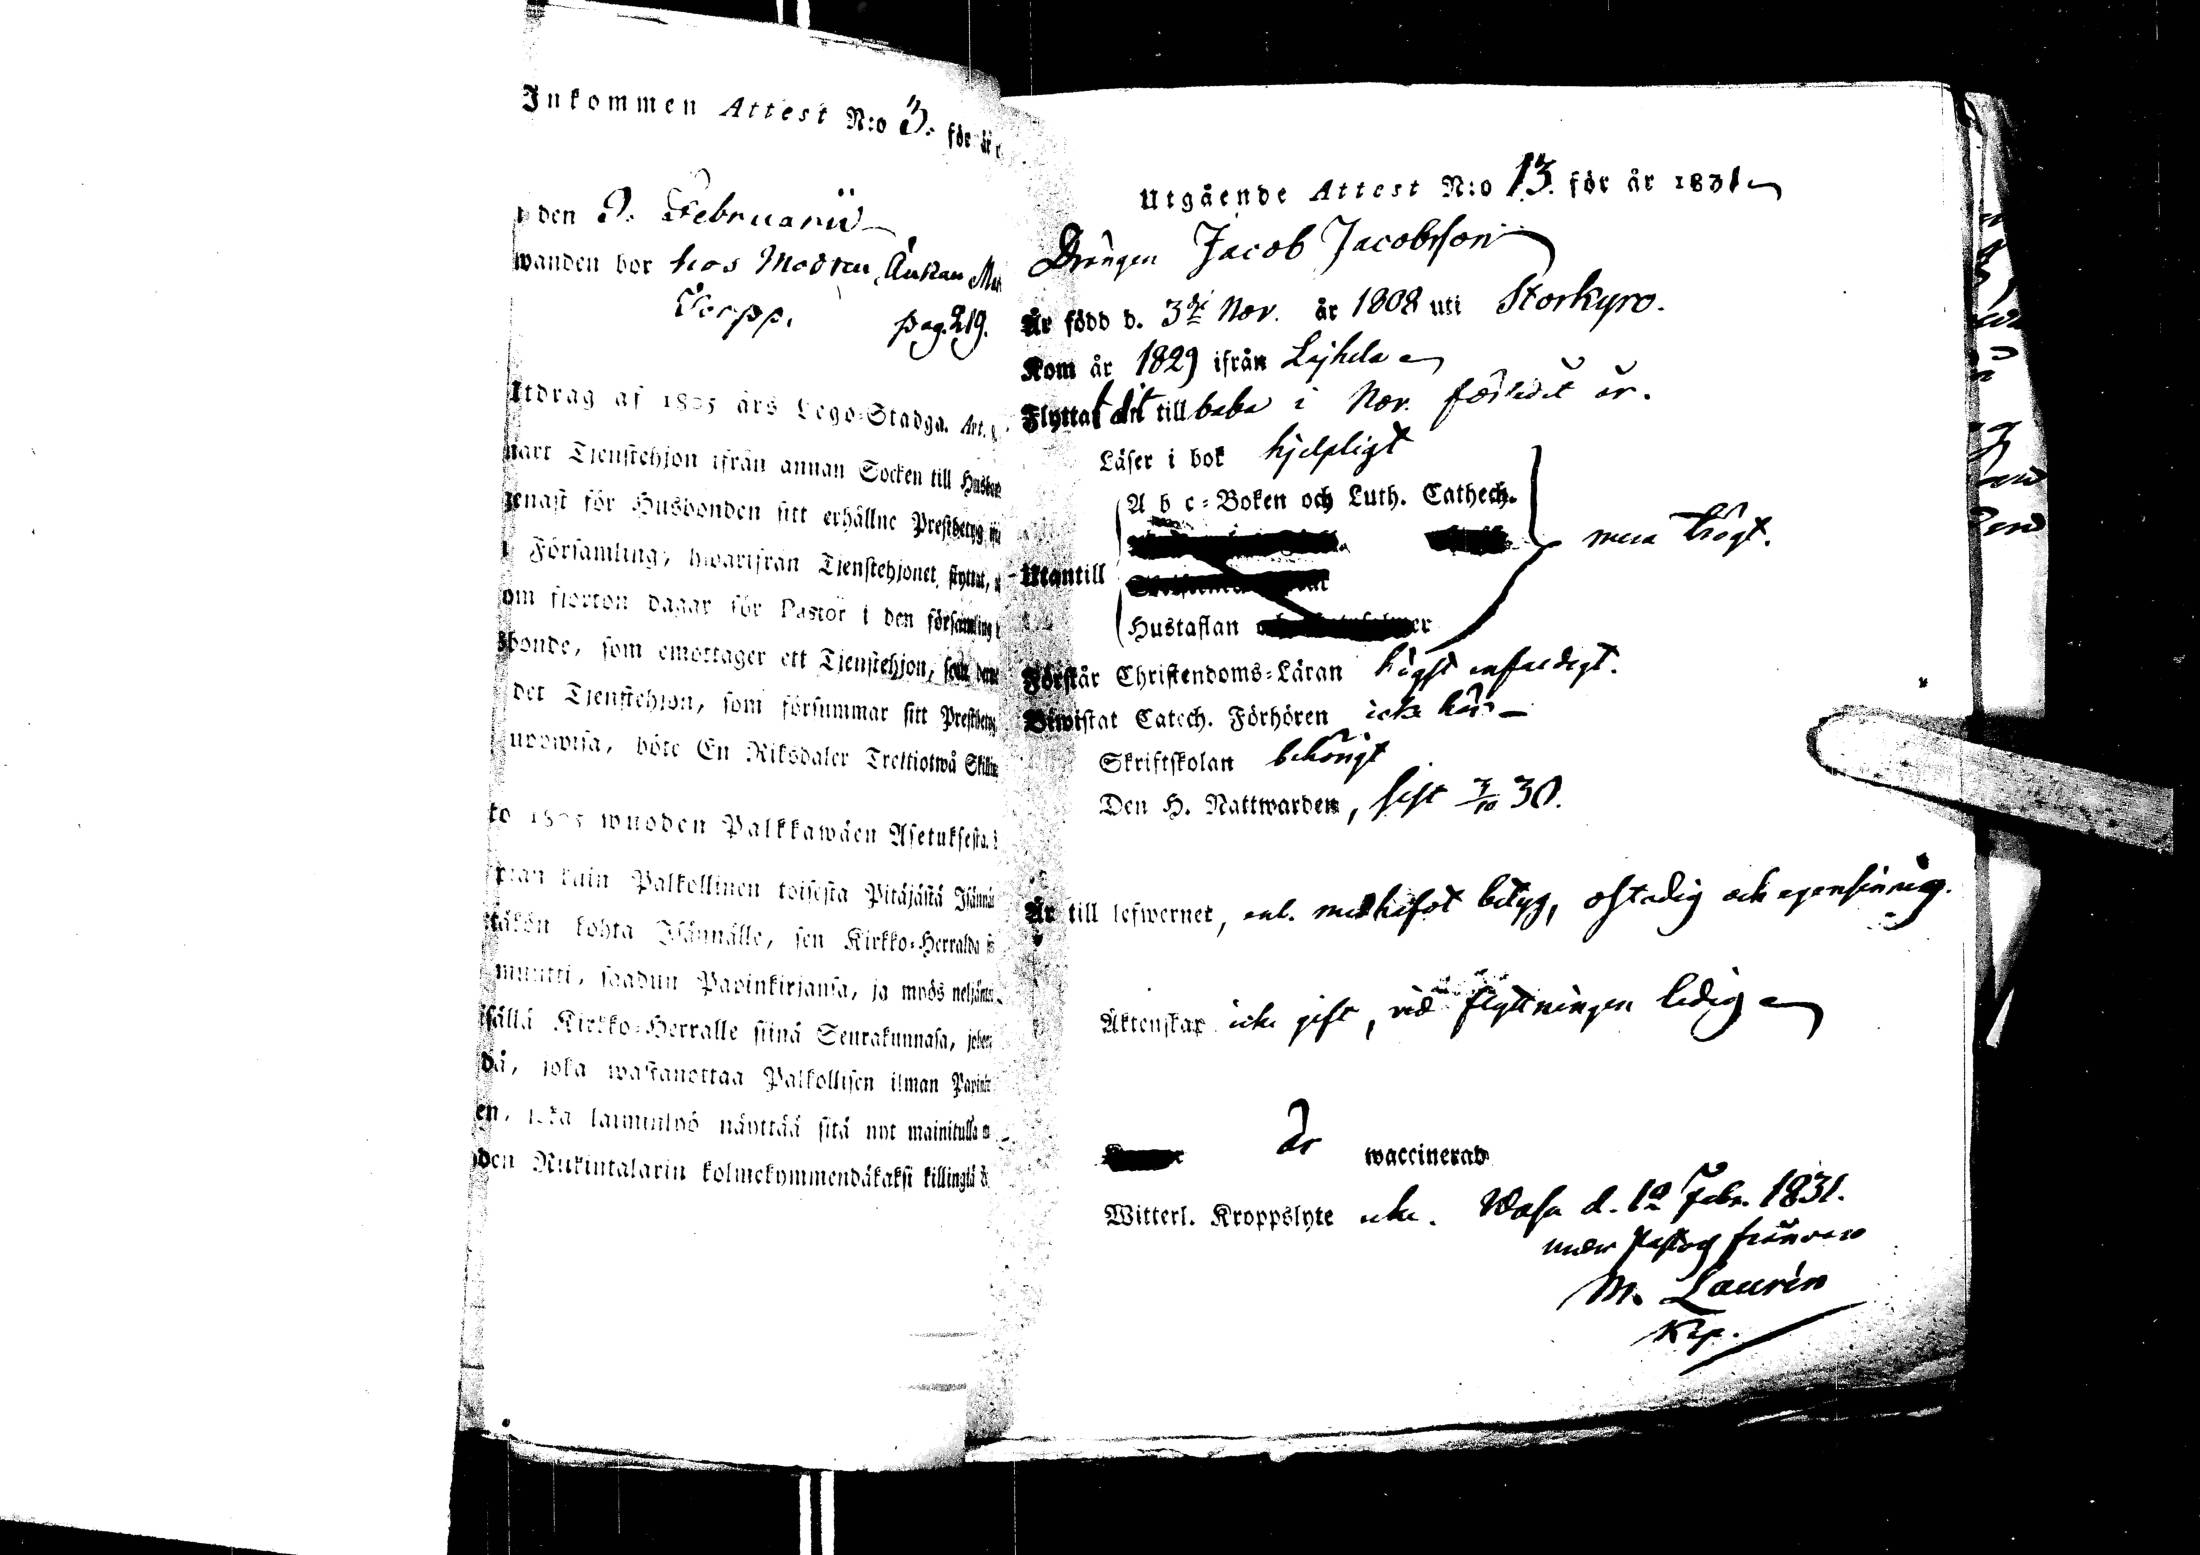 Inkommen Attest N:o 3. för år
den 9. Februarii
wanden bor hos Modren, Änkan
Torpp. pag. 219.
Utdrag af 1805 års Lego-Stadga. Art.
Tjenstehjon ifrån annan Socken till
genast för Husbonden sitt erhållne Prestbetyg
Församling, hwarifrån Tjenstehjonet flyttat,
om fjorton dagar för Pastor i den församling
sbonde, som emottager ett Tjenstehjon, som
det Tjenstehjon, som försummar sitt Prestbetyg
uppwisa, böte En Riksdaler Trettiotwå
to 1805 wuoden Palkkawäen Asetuksesta.
kuin Palkollinen toisesta Pitäjästä
täkön kohta Isännälle, sen Kirkko-Herralda
muutti, saadun Papinkirjansa, ja myös
Kirkko-Herralle siinä Seurakunnasa,
dä, joka wastanottaa Palkollisen ilman
en, joka laiminlyö näyttää sitä nyt mainitulla
den Rikintalarin kolmekymmendäkaksi killingiä
Utgående Attest N:o 13. för år 1831
Drängen Jacob Jacobsson
Är född d. 3dje Nov. år 1808 uti Storkyro.
Kom år 1829 ifrån Lajhela
Flyttat dit tillbaka i Nov. förledet år.
Läser i bok hjelpligt
A b c-Boken och Luth. Cathech.
Utantill
mera trögt.
Hustaflan
Förstår Christendoms-Läran högst enfaldigt.
Biwistat Catech. Förhören icke här
Skriftskolan behörigt
Den H. Nattwarden, sist 3/10 30.
Är till lefwernet, enl. medhafdt betyg, ostadig och egensinnig.
Äktenskap icke gift, vid flyttningen ledig
är waccinerad
Witterl. Kroppslyte icke. Wasa d. 1a Febr. 1831.
M. Laurin